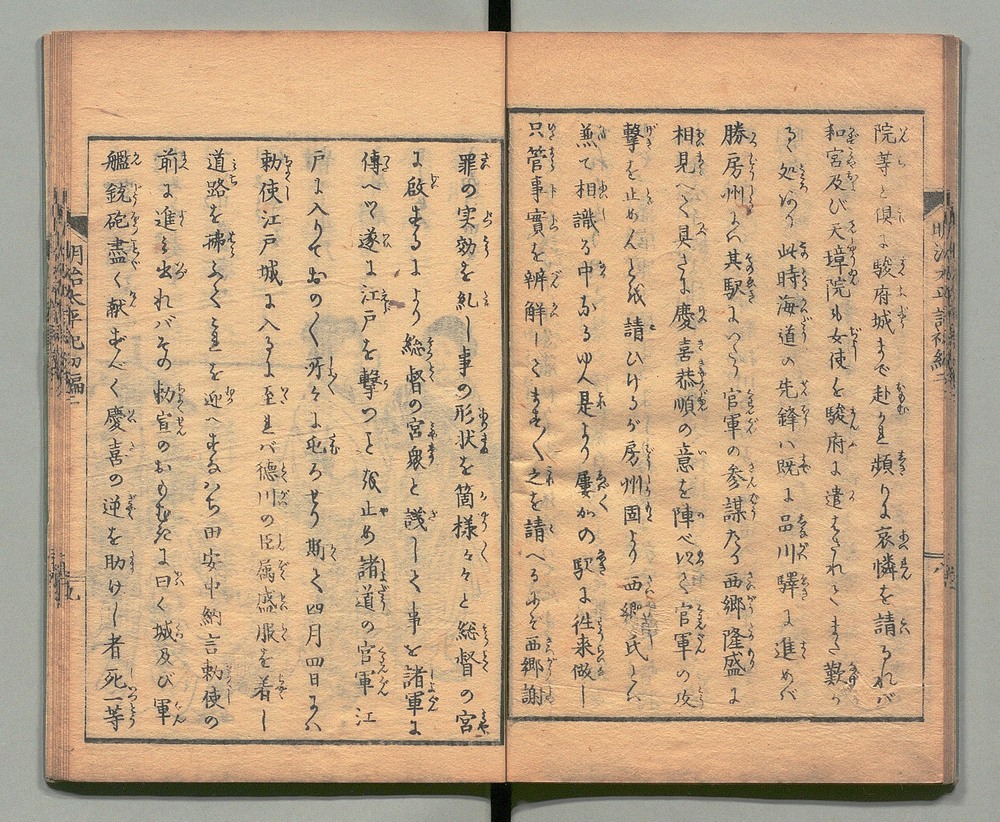 院等と倶に駿府城まで赴かれ頻りに哀憐を請るれバ
和宮及び天璋院も女使を駿府に遣はされてまた歎か
るゝ処あり此時海道の先鋒ハ既に品川驛に進めバ
勝房州にハ其駅にいたり官軍の参謀たる西郷隆盛に
相見へて具さに慶喜恭順の意を陣べ以て官軍の攻
撃を止めんとを請ひけるが房州固より西郷氏とハ
兼て相識る中なるゆへ是より屢かの駅に往来做し
只管事實を辨解しまして之を請へるにぞ西郷謝
罪の実効を糺し事の形状を箇様々々と総督の宮
に啟するより総督の宮衆と議して事を諸軍に
傳へツ遂に江戸を撃つとを止め諸道の官軍江
戸に入りておのく所々に屯ろせり斯て四月四日にハ
勅使江戸城に入るに至れバ徳川の臣属盛服を着し
道路を拂ふて是を迎へすなハち田安中納言勅使の
前に進み出れバその勅旨のおもむきに曰く城及び軍
艦銃砲盡く献ずべく慶喜の逆を助けし者死一等
明治太平記初編二
八
明治太平記初編二
九